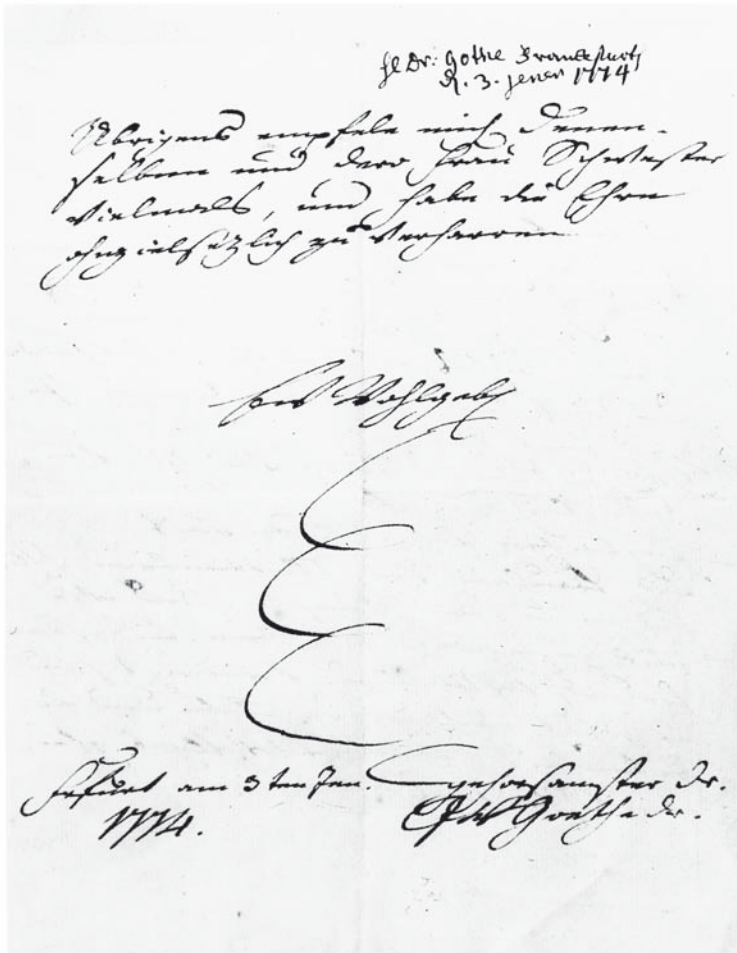 H Dr: Gothe Franckfurth
d. 3. Jener 1774
Übrigens empfele mich Denen-
selben und dero Frau Schwester
vielmals, und habe die Ehre
ohnzielsetzlich zu verharren
Ew Wohlgeb
Frfurt am 3 ten Jen. gehorsamster Dr.
1774. JW Goethe Dr.